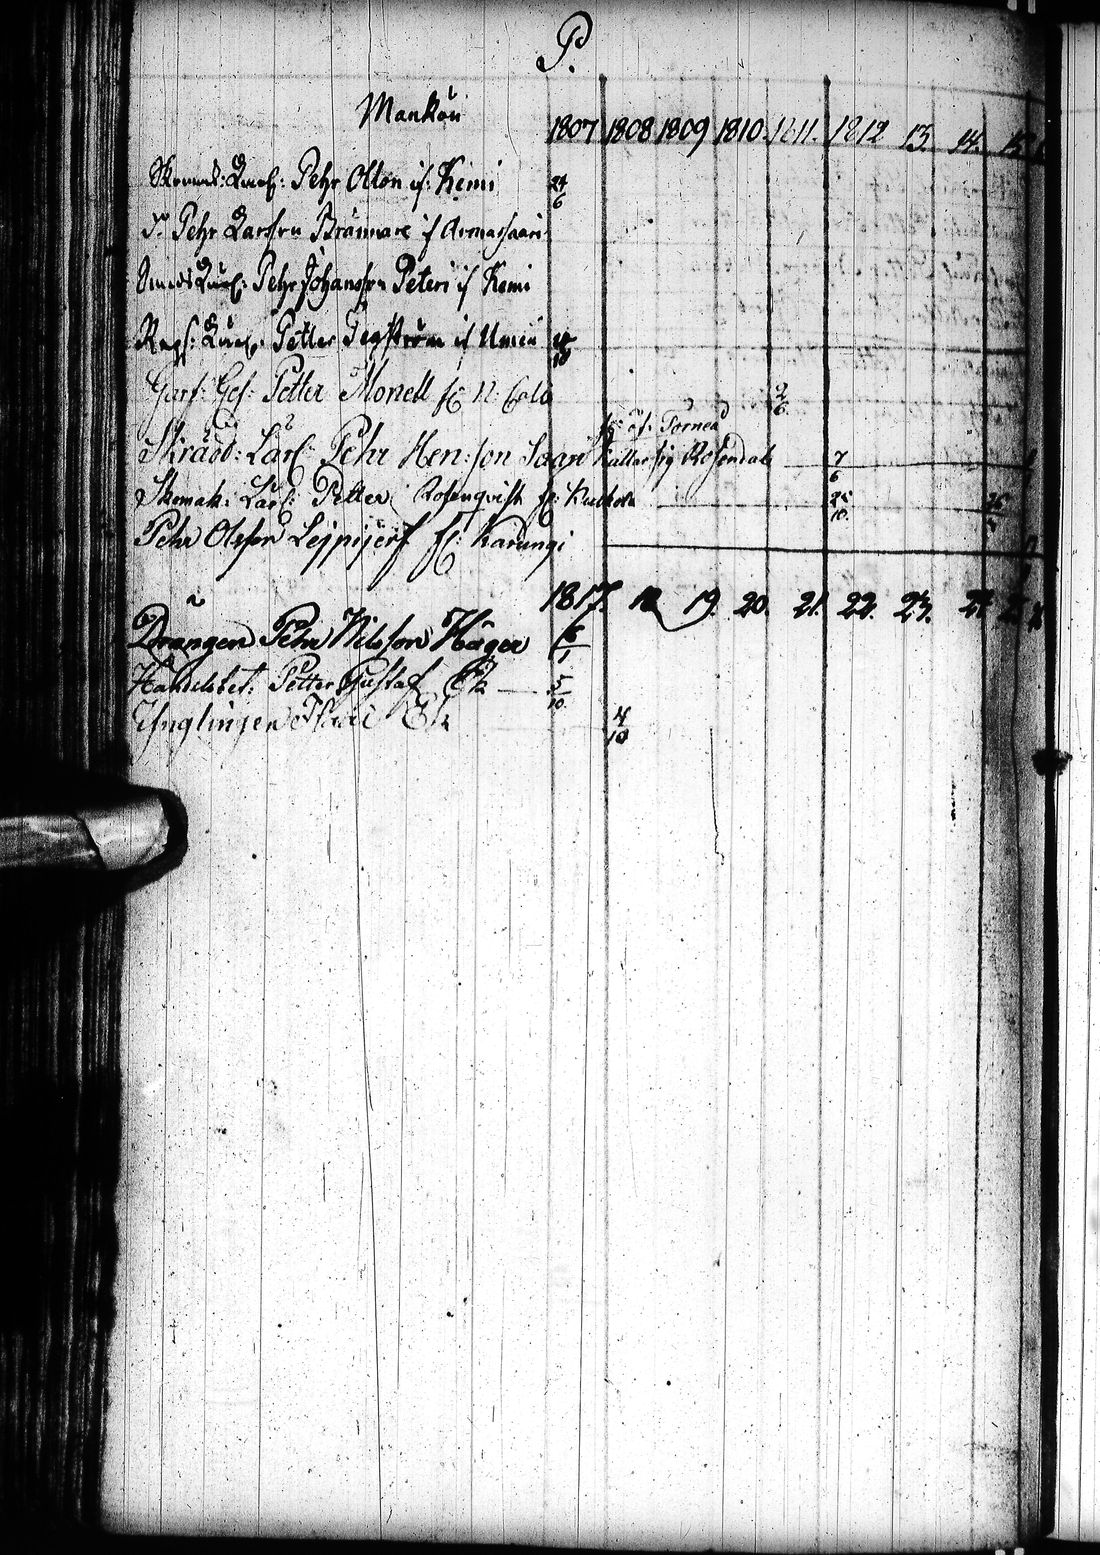 P.
Mankön
1807 1808 1809 1810 1811. 1812 13 14. 15
Pehr Olton if: Kemi 24/6
Dº Pehr Larsson Brännare if Armassaari
Pehr Johansson Peteri if Kemi
Petter Segström if Umeå
Garf: Ges: Petter Monell fr: N: Calix 2/6
fr: öf: Torneå
Skrädd: Lärl: Pehr Hen:son kallar sig Rosendahl 7/6
Skomak: Lärl: Petter Rosenqvist fr: 25/10
Pehr Olsson Leipijerf fr: Karungi
1817. 18 19. 20. 21. 22. 23. 24.
Drängen Pehr Nilsson Häger 6/1
Handelsbet: Petter Gustaf Ek 5/10
Ynglingen Ek 4/10